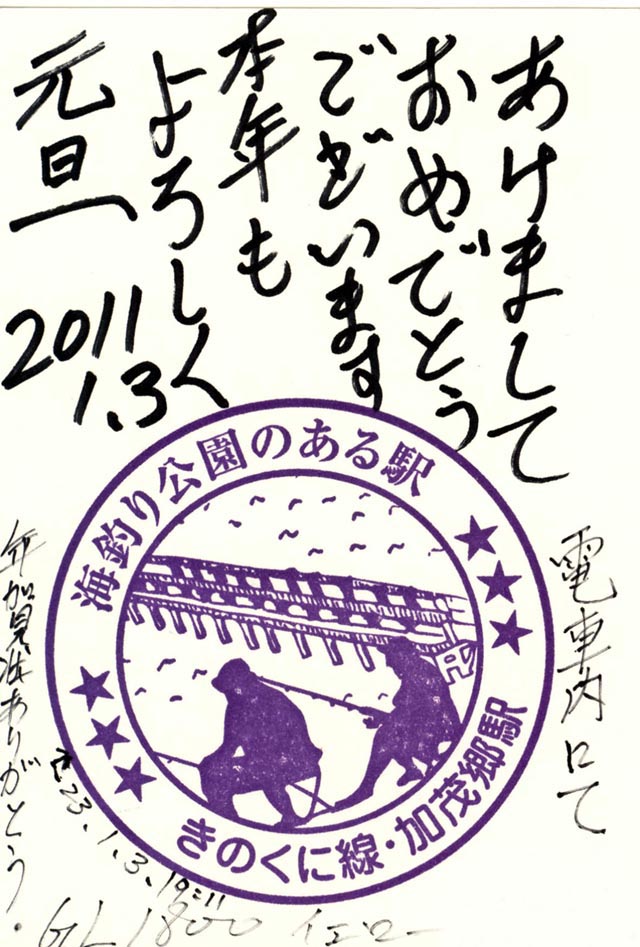 あけまして
おめでとう
ございます
本年も
よろしく
元旦
2011
1.3
海釣り公園のある駅
きのくに線・加茂郷駅
電車内にて
年賀見ました ありがとう.
23.1.3.19:11
GL1800 イエロー